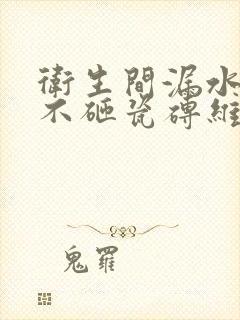 衛生間漏水
不砸瓷磚維
鬼羅